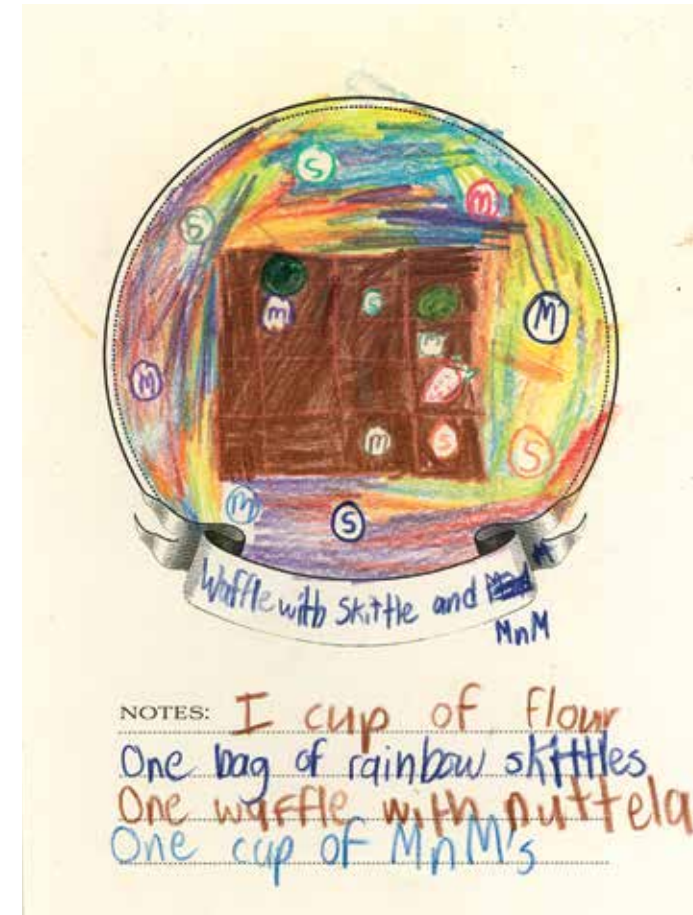 S
M
S
M
m
S
m
M
m
S
M
S
M
S
Waffle with Skittle and
M
MnM
NOTES: I cup of flour
One bag of rainbow skittles
One waffle with nuttela
One cup of MnM's